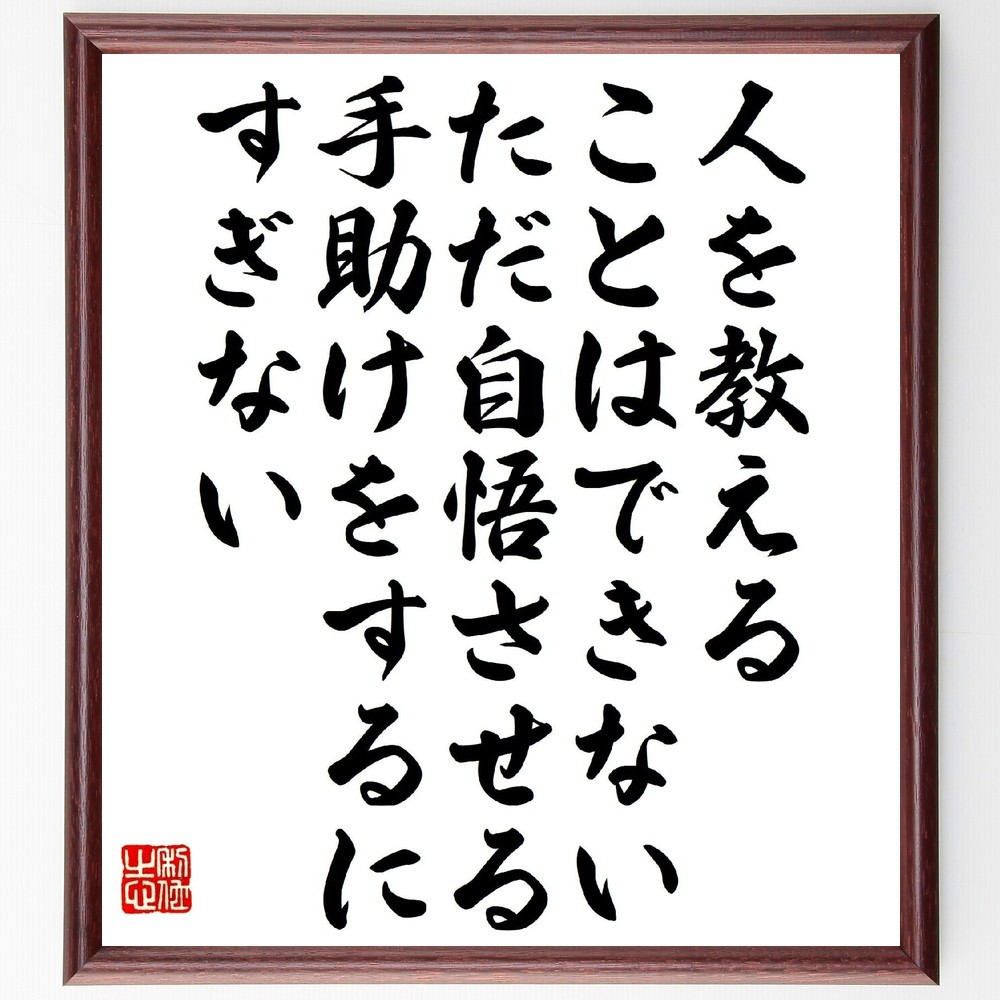 人を教える
ことはできない
ただ自悟させる
手助けをするに
すぎない